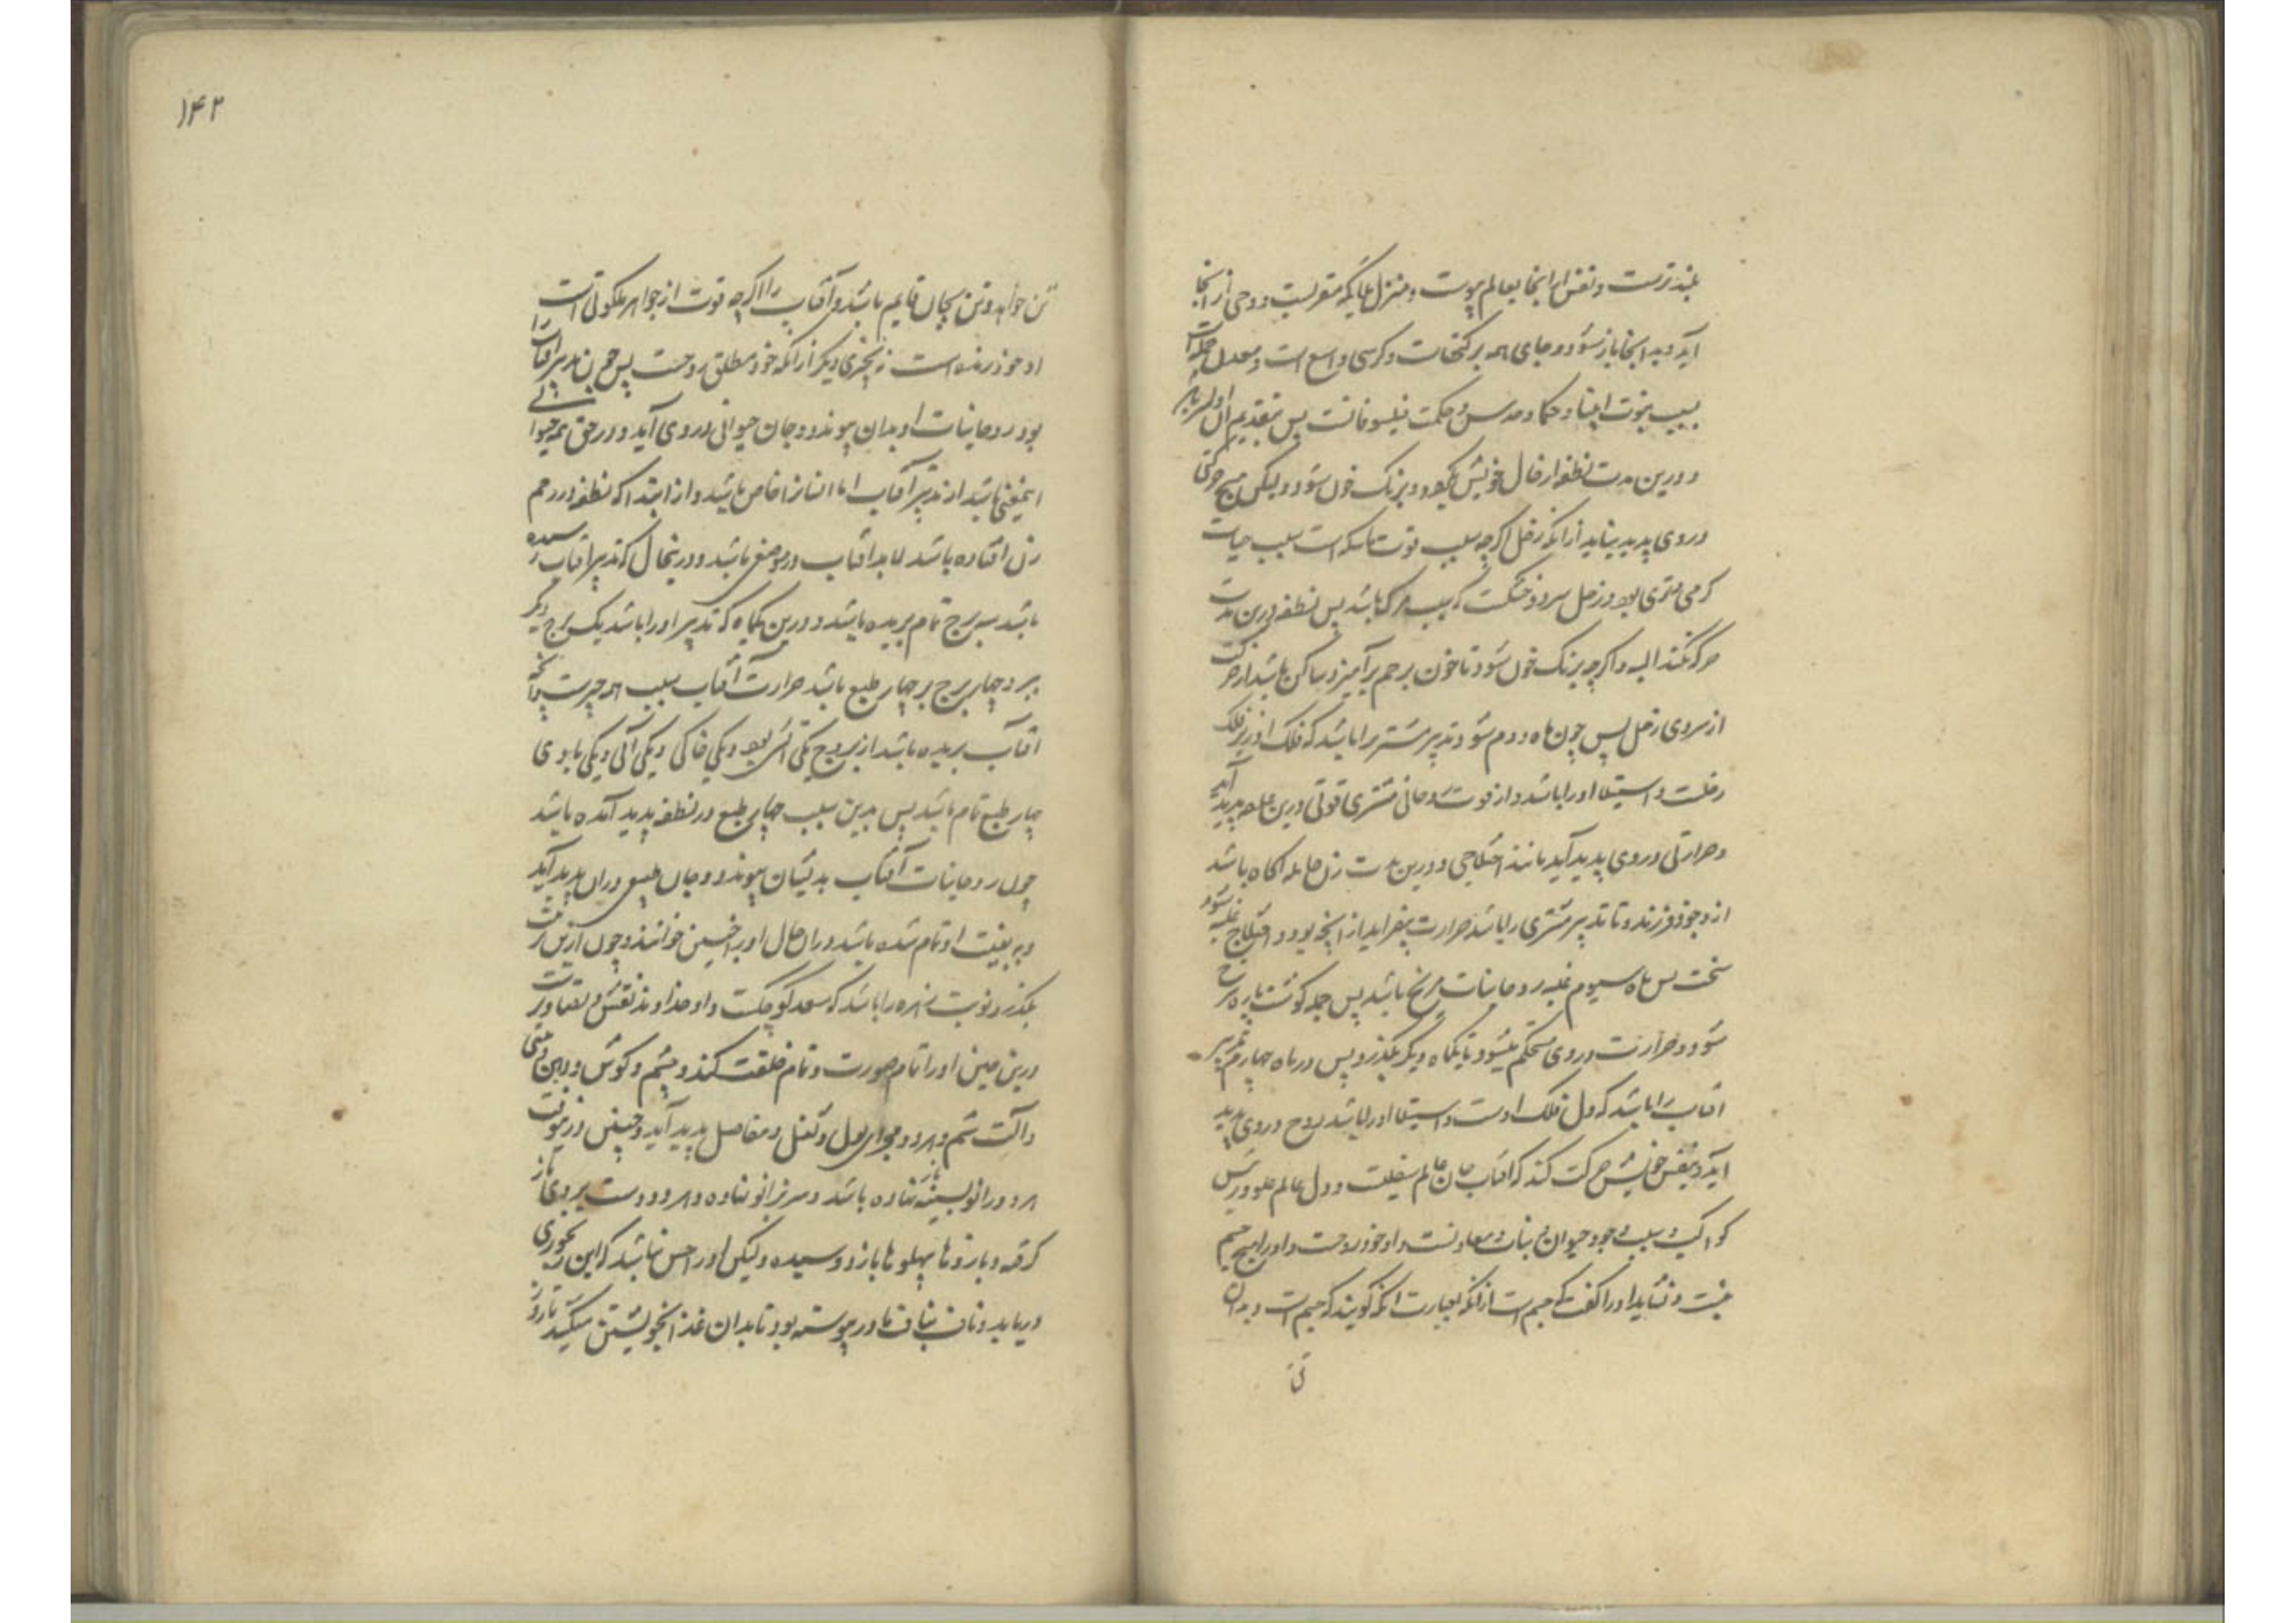 بلندترست و نفس را اینجا بعالم پیوست و منزل ملائکه مقربست و وحی از آنجا
آید و بدانجا باز شود و جای همه برکتهاست و کرسی واسع است و معدل
بسبب نبوت انبیا و حکما و حکمت فیلسوفانست پس بتقدیم اول
و درین مدت نطفه از حال خویش بگردد و برنگ خون شود ولیکن هیچ حرکتی
در وی پدید نیاید از آنکه زحل اگرچه سبب قوت ماسکه است سبب حیات
گرمی و تری بود و زحل سرد و خشکست که سبب مرگ باشد پس نطفه درین مدت
حرکت نکند البته و اگرچه برنگ خون شود تا خون برحم برآمیزد ساکن باشد از حرکت
از سردی زحل پس چون ماه دوم شود تدبیر مشتری را باشد که فلک او زیر فلک
زحلست و استیلا او را باشد و از قوت روحانی مشتری قوتی درین علقه پدید آید
و حرارتی در وی پدید آید مانند اختلاجی و درین مدت زن حامله آگاه باشد
از وجود فرزند و تا تدبیر مشتری را باشد حرارت بیفزاید از آنچه بود و اختلاج غلبه شود
سخت پس ماه سیوم غلبه روحانیات مریخ باشد پس جمله گوشت پاره سرخ
شود و حرارت در وی مستحکم میشود تا یکماه دیگر بگذرد پس در ماه چهارم تدبیر
آفتاب را باشد که دل فلک اوست و استیلا او را باشد روح در وی پدید
آید و بنفس خویش حرکت کند که آفتاب جان عالم سفلیست و دل عالم علو و رئیس
کواکب و سبب وجود حیوان و نبات و معاونست و او خود روحست و او را هیچ جسم
نیست و نشاید او را گفت که جسم است از آنکه بعبارت آنکه گویند که جسم است و بدان
تن
۱۴۲
تن خواهد و تن بجان قایم باشد و آفتاب را اگرچه قوت از جواهر ملکوتی است
او خود زنده است نه بچیزی دیگر از آنکه خود مطلق روحست پس چون تدبیر آفتاب را
بود روحانیات او بدان پیوندد و جان حیوانی در وی آید و در حق همه حیوانی
اینمعنی باشد از تدبیر آفتاب اما انسان را خاص باشد و از ابتدا که نطفه در رحم
زن افتاده باشد لابد آفتاب در موضعی باشد و درینحال که تدبیر آفتاب رسیده
باشد سه برج تمام بریده باشد و درین یکماه که تدبیر او را باشد یک برج دیگر
ببرد چهار برج بر چهار طبع باشد حرارت آفتاب سبب همه چیزست
آفتاب بریده باشد از بروج یکی آتشی بود و یکی خاکی و یکی آبی و یکی بادی
چهار طبع تمام باشد پس بدین سبب چهار طبع در نطفه پدید آمده باشد
چون روحانیات آفتاب بدیشان پیوندد و جان طبیعی در آن پدید آید
و تربیت او تمام شده باشد در آن حال او را جنین خوانند و چون ازین
بگذرد نوبت زهره را باشد که سعد کوچکست و او خداوند نقش و تصاویرست
درین حین او را تمام صورت و تمام خلقت کند و چشم و گوش و دهن و بینی
و آلت شم و هر دو مجرای بول و ثفل و مفاصل پدید آید و جنین درین وقت
هر دو زانو بسینه باز نهاده باشد و سر بزانو نهاده و هر دو دست بر روی باز
گرفته و بازوها بپهلوها باز دوسیده ولیکن او را حس نباشد که این رنجوری
دریابد و ناف بناف مادر پیوسته بود تا بدان غذا بخویشتن میکشد تا روز